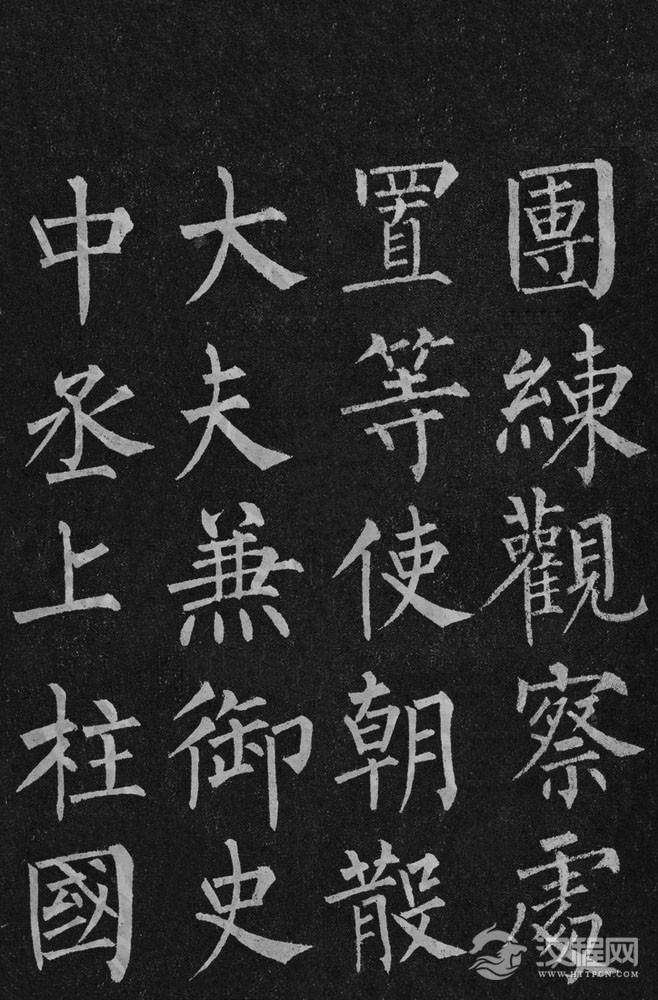 團練觀察處
置等使朝散
大夫兼御史
中丞上柱國
汉程网
WWW.HTTPCN.COM